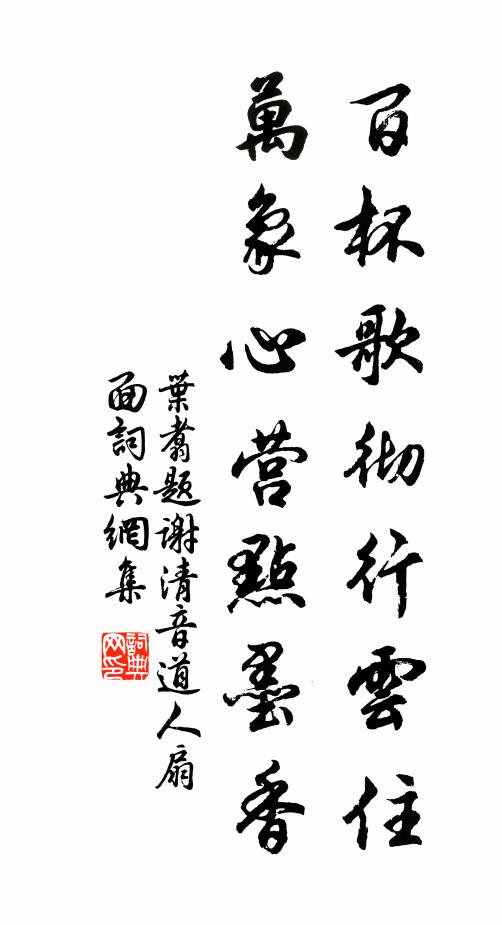 百杯歌彻行雲住
萬象心营點墨香
葉翥题謝清音道人扇
面詞典網集
詞典
网印